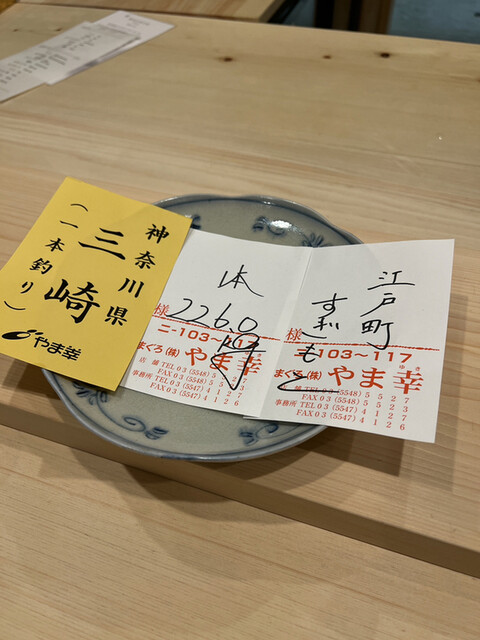 神奈川県
三崎
(一本釣り)
やま幸
様
226.0
ニ-103~117
まぐろ(株)やま幸
店舗 TEL 03 (5548) 5527
FAX 03 (5548) 5523
事務所 TEL 03 (5547) 4127
FAX 03 (5547) 4126
江戸町
様
103~117
まぐろ(株)やま幸
ゆき
舗 TEL 03 (5548) 5527
FAX 03 (5548) 5523
事務所 TEL 03 (5547) 4127
FAX 03 (5547) 4126